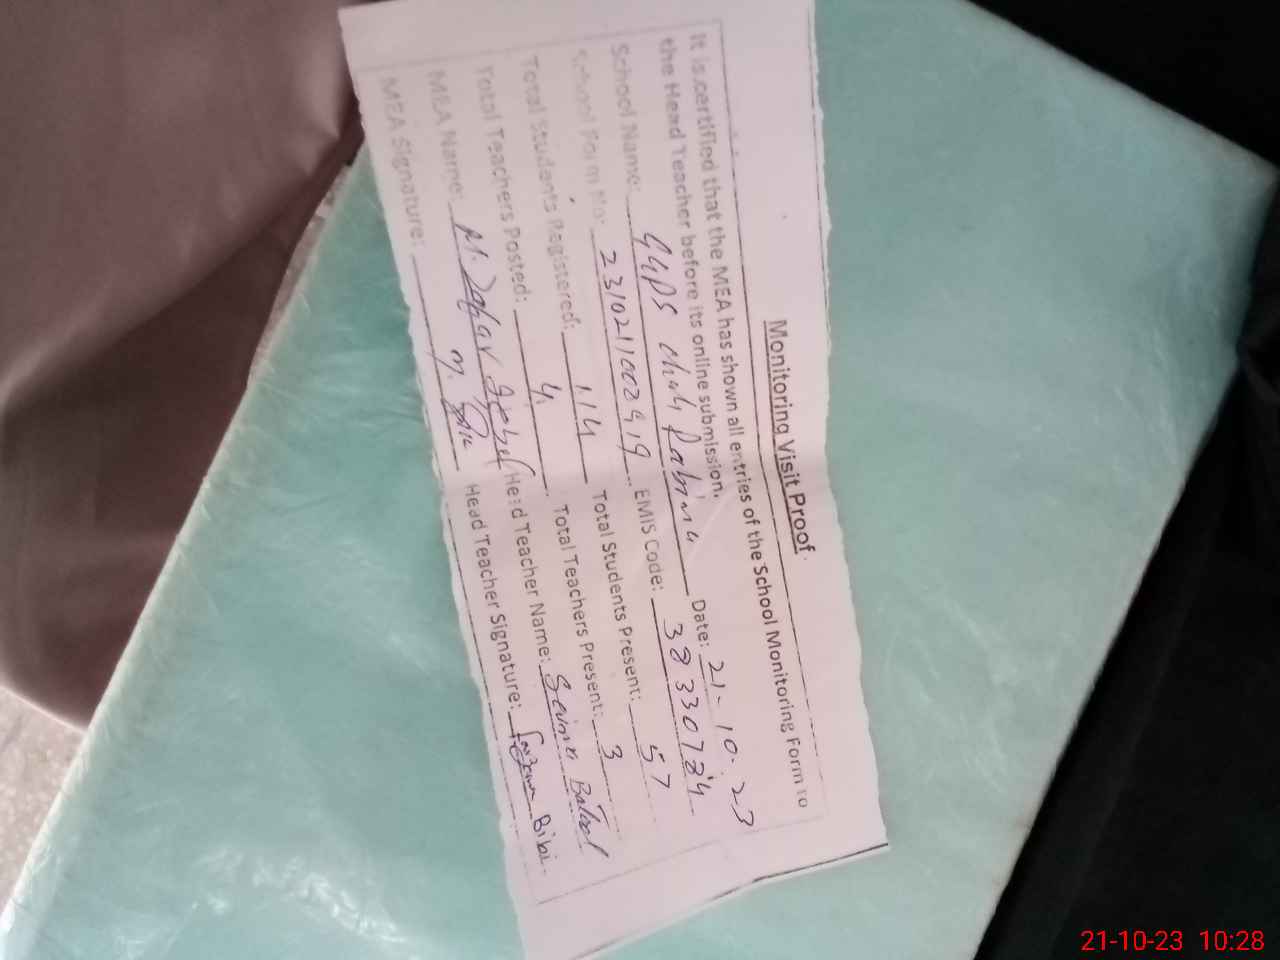 Monitoring Visit Proof
It is certified that the MEA has shown all entries of the School Monitoring Form to
the Head Teacher before its online submission.
School Name: GGPS chak Date: 21-10-23
School Form No: EMIS Code: 38330784
Total Students Registered: 114 Total Students Present: 57
Total Teachers Posted: 4 Total Teachers Present: 3
MEA Name: M. Zafar Iqbal Head Teacher Name: Batool
MEA Signature: M. Head Teacher Signature: Bibi
21-10-23 10:28